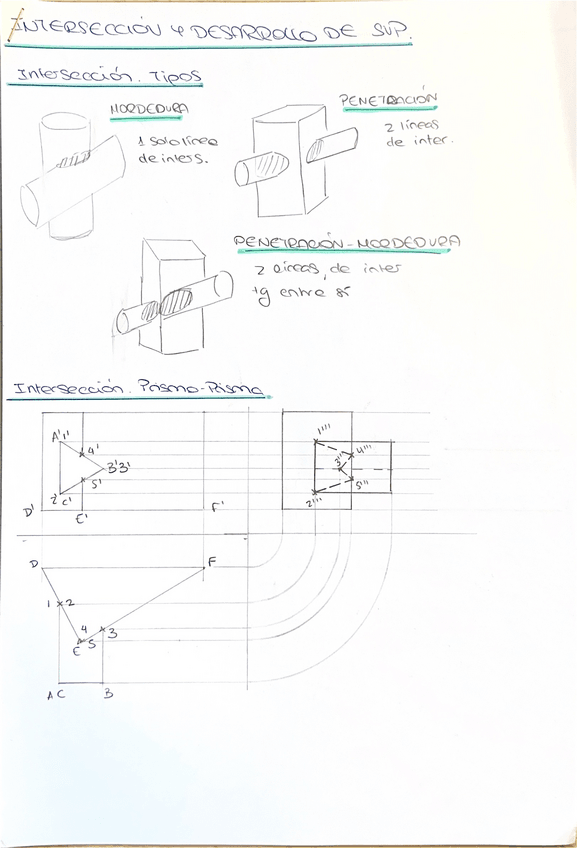 INTERSECCIÓN Y DESARROLLO DE SUP.
Intersección. Tipos
MORDEDURA
1 sola línea
de inters.
PENETRACIÓN
2 líneas
de inter.
PENETRACIÓN-MORDEDURA
2 líneas, de inter
tg entre sí
Intersección. Prisma-Prisma
A'1'
4'
B'3'
5'
2'
C'
D'
E'
F'
1'''
4'''
3'''
5'''
2'''
D
F
1
2
4
3
E
5
A C
B